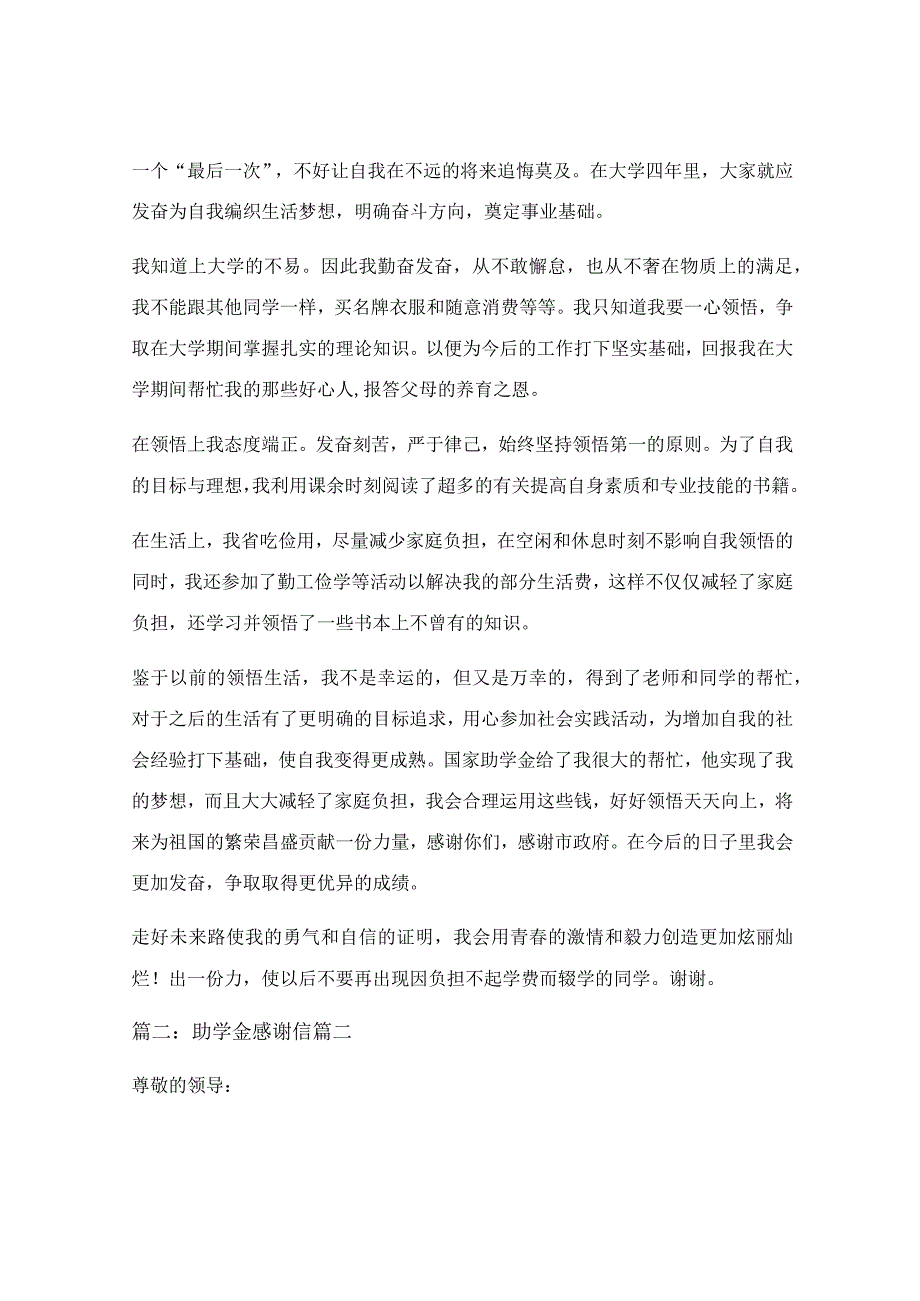 一个“最后一次”，不好让自我在不远的将来追悔莫及。在大学四年里，大家就应
发奋为自我编织生活梦想，明确奋斗方向，奠定事业基础。
我知道上大学的不易。因此我勤奋发奋，从不敢懈怠，也从不奢在物质上的满足，
我不能跟其他同学一样，买名牌衣服和随意消费等等。我只知道我要一心领悟，争
取在大学期间掌握扎实的理论知识。以便为今后的工作打下坚实基础，回报我在大
学期间帮忙我的那些好心人,报答父母的养育之恩。
在领悟上我态度端正。发奋刻苦，严于律己，始终坚持领悟第一的原则。为了自我
的目标与理想，我利用课余时刻阅读了超多的有关提高自身素质和专业技能的书籍。
在生活上，我省吃俭用，尽量减少家庭负担，在空闲和休息时刻不影响自我领悟的
同时，我还参加了勤工俭学等活动以解决我的部分生活费，这样不仅仅减轻了家庭
负担，还学习并领悟了一些书本上不曾有的知识。
鉴于以前的领悟生活，我不是幸运的，但又是万幸的，得到了老师和同学的帮忙，
对于之后的生活有了更明确的目标追求，用心参加社会实践活动，为增加自我的社
会经验打下基础，使自我变得更成熟。国家助学金给了我很大的帮忙，他实现了我
的梦想，而且大大减轻了家庭负担，我会合理运用这些钱，好好领悟天天向上，将
来为祖国的繁荣昌盛贡献一份力量，感谢你们，感谢市政府。在今后的日子里我会
更加发奋，争取取得更优异的成绩。
走好未来路使我的勇气和自信的证明，我会用青春的激情和毅力创造更加炫丽灿
烂！出一份力，使以后不要再出现因负担不起学费而辍学的同学。谢谢。
篇二：助学金感谢信篇二
尊敬的领导：